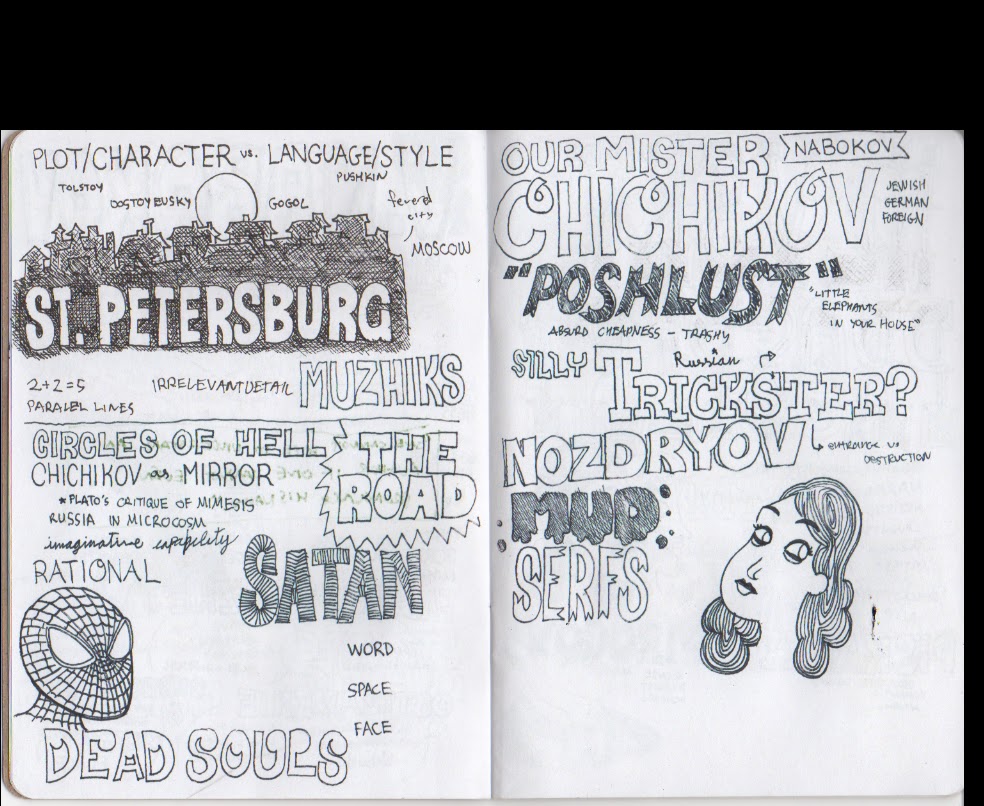 PLOT/CHARACTER vs. LANGUAGE/STYLE
TOLSTOY
PUSHKIN
DOSTOYEVSKY
GOGOL
fevered
city
MOSCOW
ST. PETERSBURG
2+2=5
PARALEL LINES
IRRELEVANT DETAIL
MUZHIKS
CIRCLES OF HELL
CHICHIKOV as MIRROR
*PLATO'S CRITIQUE OF MIMESIS
RUSSIA IN MICROCOSM
imaginative capability
RATIONAL
THE
ROAD
SATAN
WORD
SPACE
FACE
DEAD SOULS
OUR MISTER
NABOKOV
CHICHIKOV
JEWISH
GERMAN
FOREIGN
"POSHLUST"
ABSURD CHEAPNESS - TRASHY
"LITTLE
ELEPHANTS
IN YOUR HOUSE"
SILLY
Russian
TRICKSTER?
NOZDRYOV
DESTRUCTION
MUD
SERFS